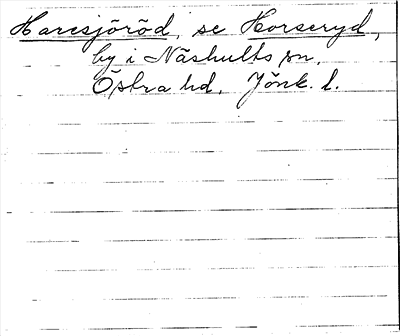 Haresjöröd, se Horseryd,
by i Näshults sn,
Östra hd, Jönk. l.